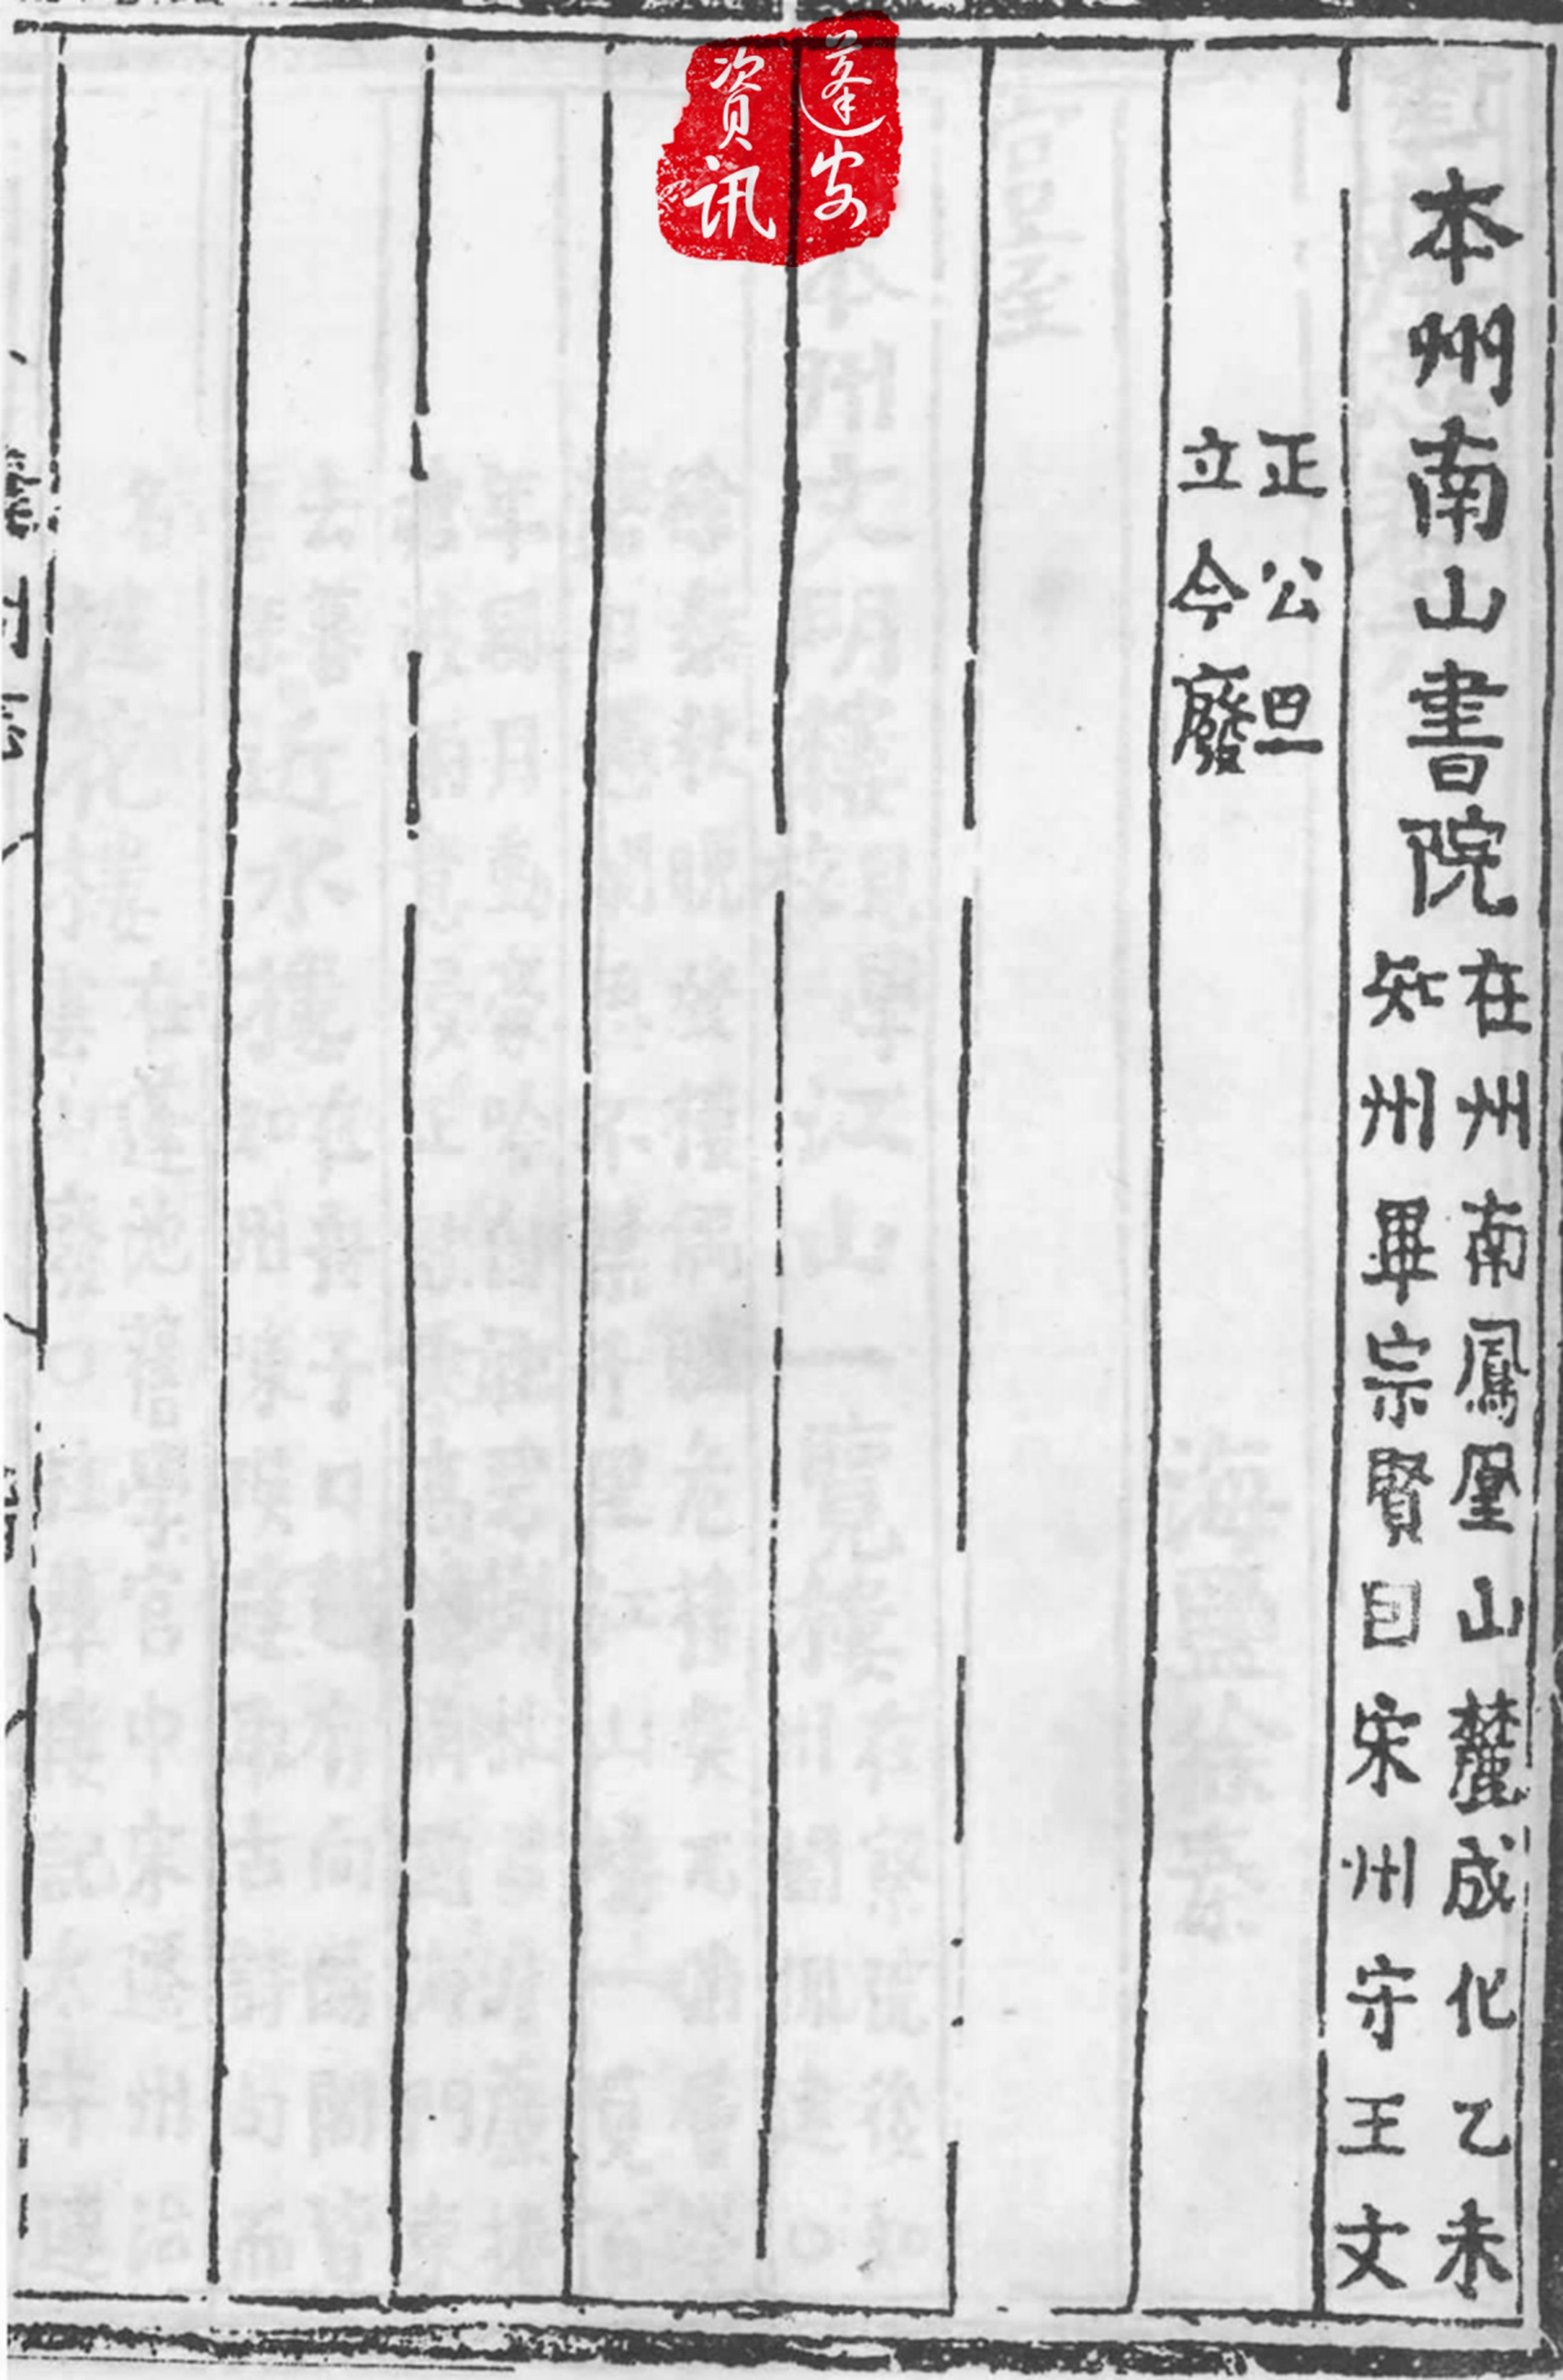 本州南山書院
在州南鳳凰山麓成化乙未
知州畢宗賢因宋州守王文
正公旦
立今廢
蓬安
資訊